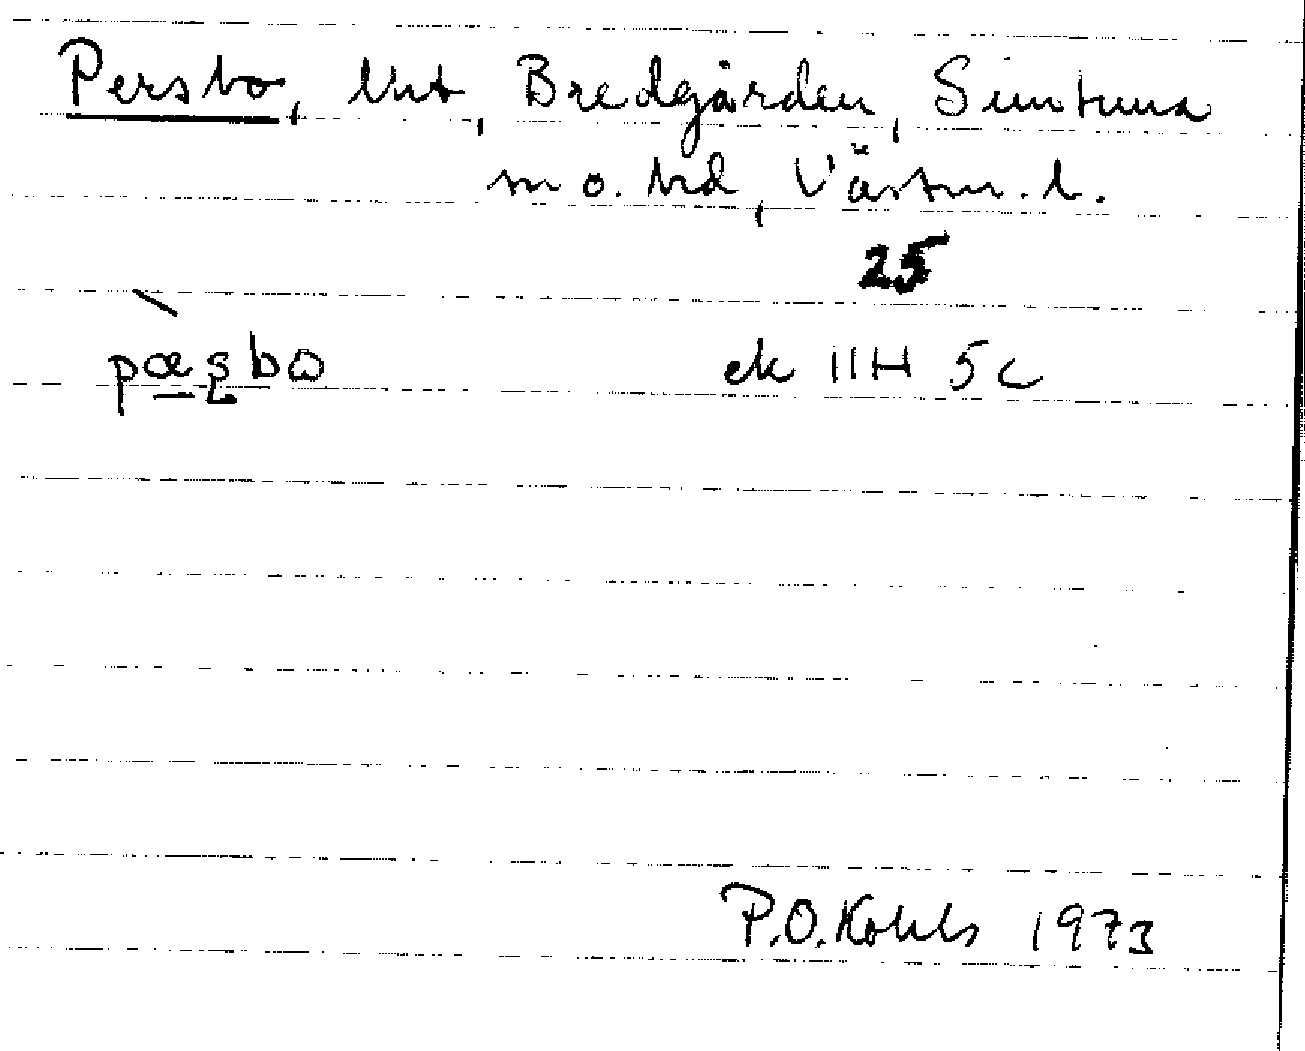 Persbo, lht, Bredgården, Simtuna
sn o. hd, Västm. l.
25
pæsbo
ek 11H 5c
P.O.Kohls 1973